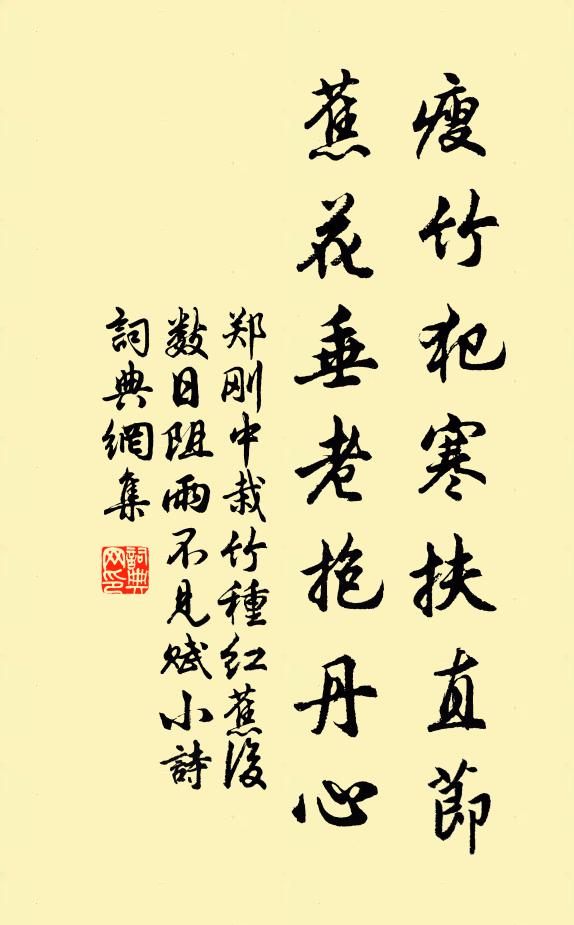 瘦竹犯寒扶直節
蕉花垂老抱丹心
郑刚中栽竹種红蕉後
数日阻雨不見赋小詩
詞典網集
詞典
网印